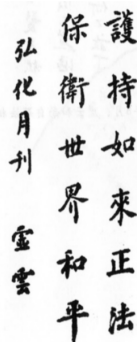 護持如來正法
保衛世界和平
弘化月刊
虛雲